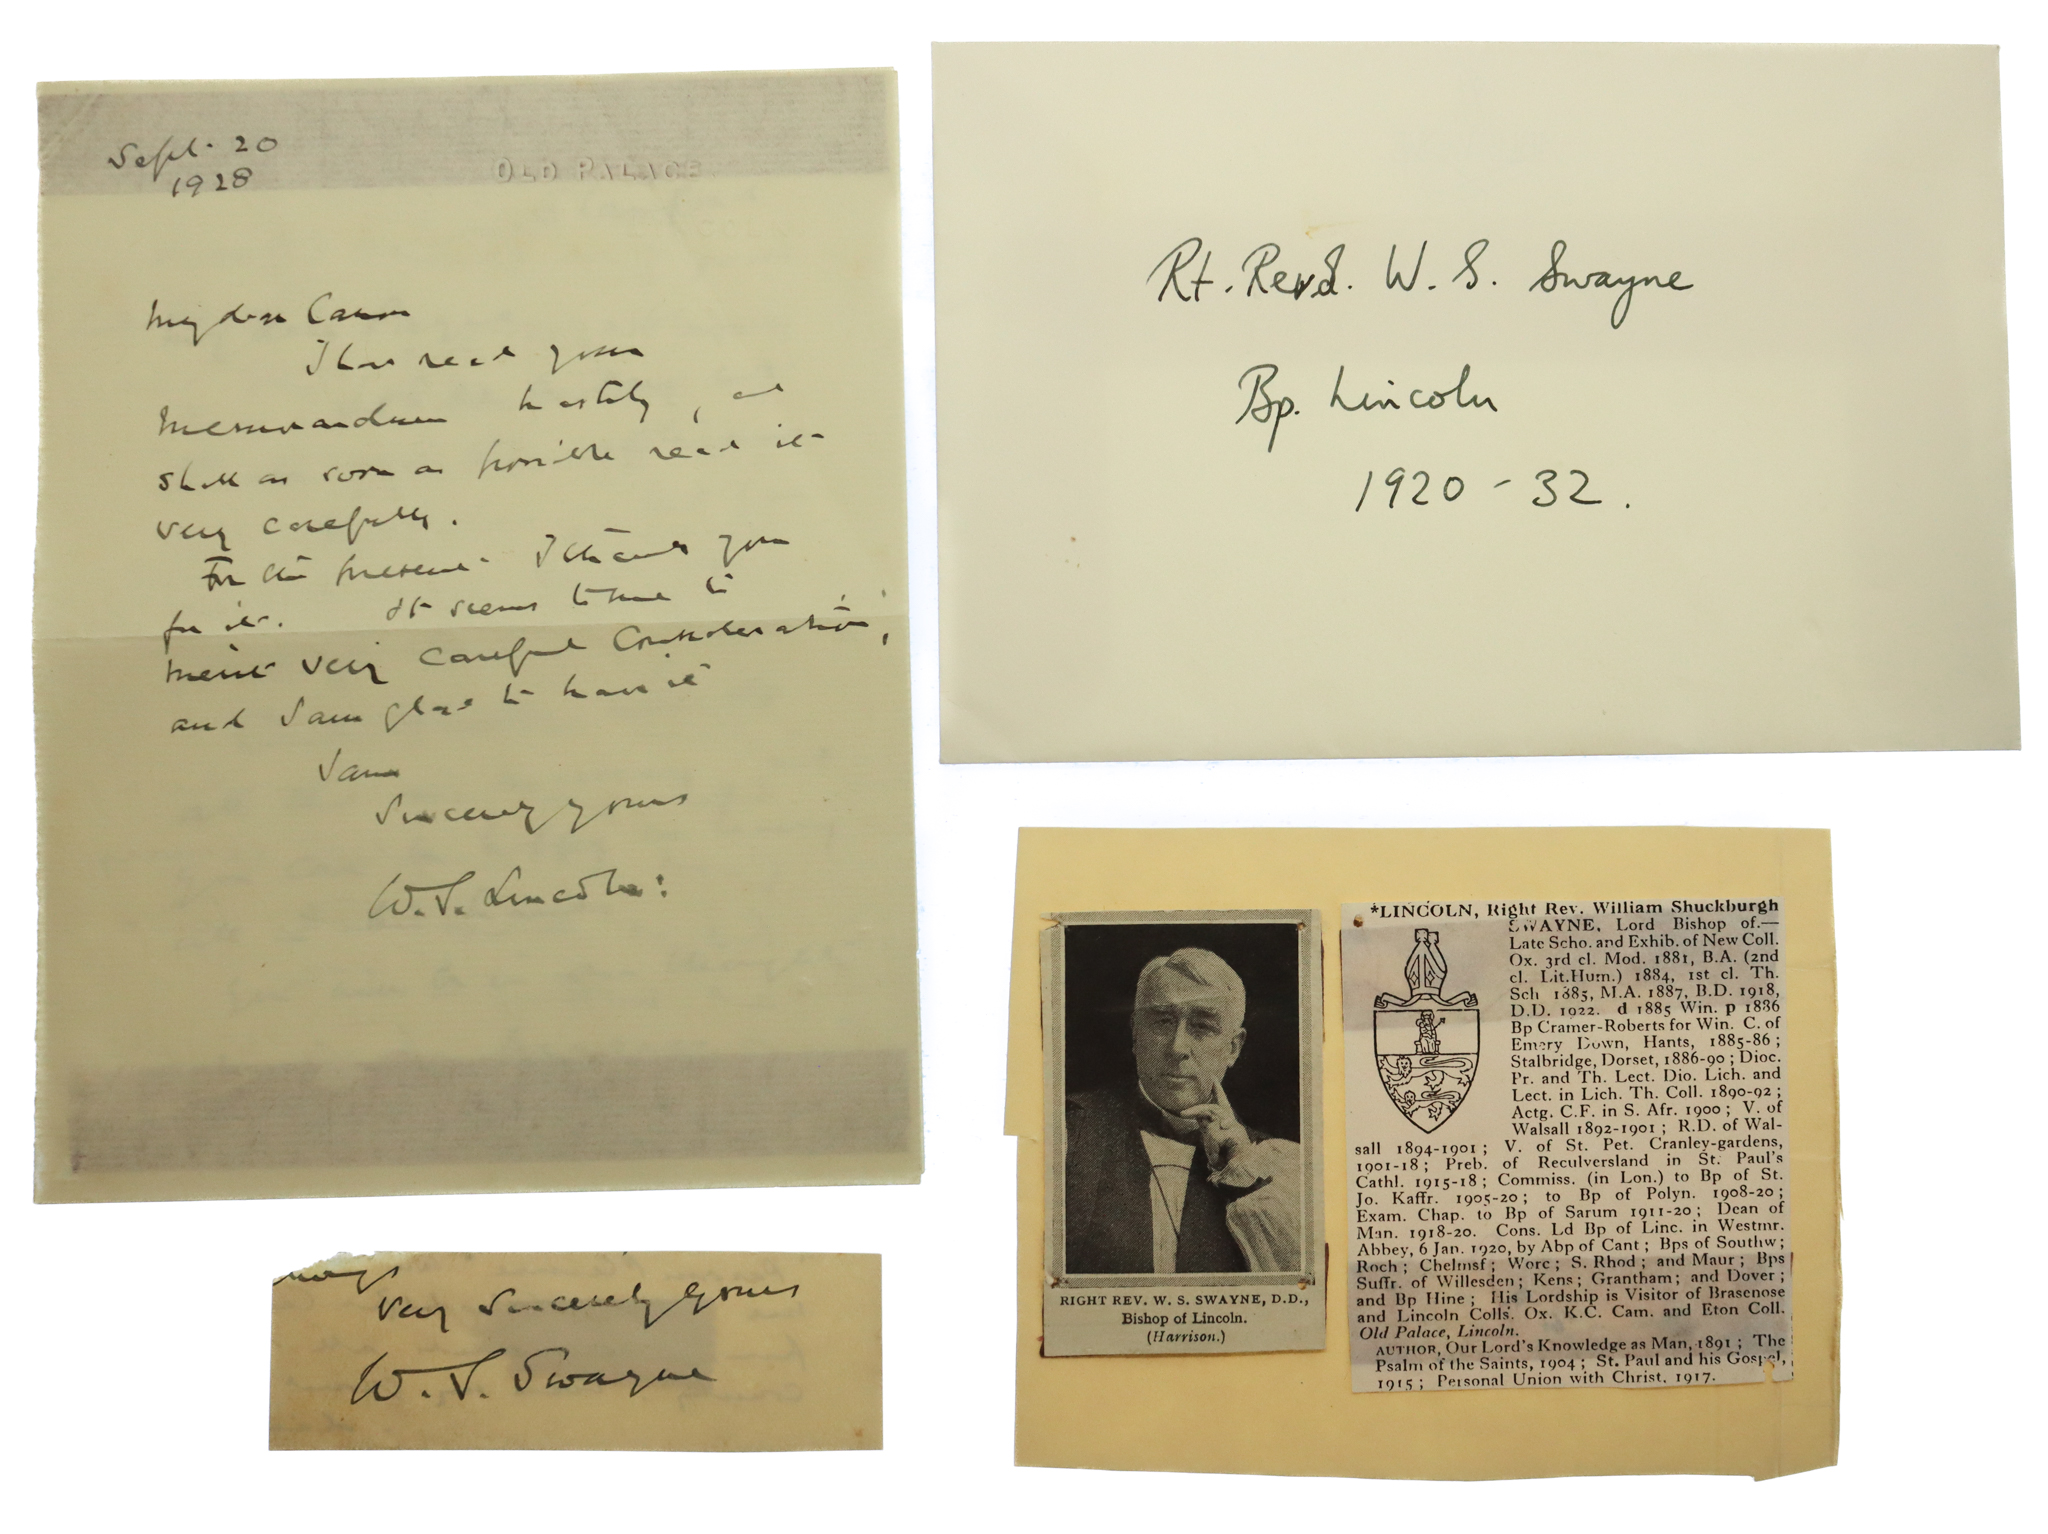 Sept. 20
1928
OLD PALACE
My dear Canon
I have read your
memorandum hastily, and
shall as soon as possible read it
very carefully.
For the present I thank you
for it. It seems to me to
merit very careful consideration,
and I am glad to have it
I am
Sincerely yours
W. S. Lincoln:
Very sincerely yours
W. S. Swayne
Rt. Revd. W. S. Swayne
Bp. Lincoln
1920 - 32.
RIGHT REV. W. S. SWAYNE, D.D.,
Bishop of Lincoln.
(Harrison.)
*LINCOLN, Right Rev. William Shuckburgh
SWAYNE, Lord Bishop of.—
Late Scho. and Exhib. of New Coll.
Ox. 3rd cl. Mod. 1881, B.A. (2nd
cl. Lit.Hum.) 1884, 1st cl. Th.
Sch 1885, M.A. 1887, B.D. 1918,
D.D. 1922. d 1885 Win. p 1886
Bp Cramer-Roberts for Win. C. of
Emery Down, Hants, 1885-86;
Stalbridge, Dorset, 1886-90; Dioc.
Pr. and Th. Lect. Dio. Lich. and
Lect. in Lich. Th. Coll. 1890-92;
Actg. C.F. in S. Afr. 1900; V. of
Walsall 1892-1901; R.D. of Wal-
sall 1894-1901; V. of St. Pet. Cranley-gardens,
1901-18; Preb. of Reculversland in St. Paul's
Cathl. 1915-18; Commiss. (in Lon.) to Bp of St.
Jo. Kaffr. 1905-20; to Bp of Polyn. 1908-20;
Exam. Chap. to Bp of Sarum 1911-20; Dean of
Man. 1918-20. Cons. Ld Bp of Linc. in Westmr.
Abbey, 6 Jan. 1920, by Abp of Cant; Bps of Southw;
Roch; Chelmsf; Worc; S. Rhod; and Maur; Bps
Suffr. of Willesden; Kens; Grantham; and Dover;
and Bp Hine; His Lordship is Visitor of Brasenose
and Lincoln Colls. Ox. K.C. Cam. and Eton Coll.
Old Palace, Lincoln.
AUTHOR, Our Lord's Knowledge as Man, 1891; The
Psalm of the Saints, 1904; St. Paul and his Gospel,
1915; Personal Union with Christ, 1917.